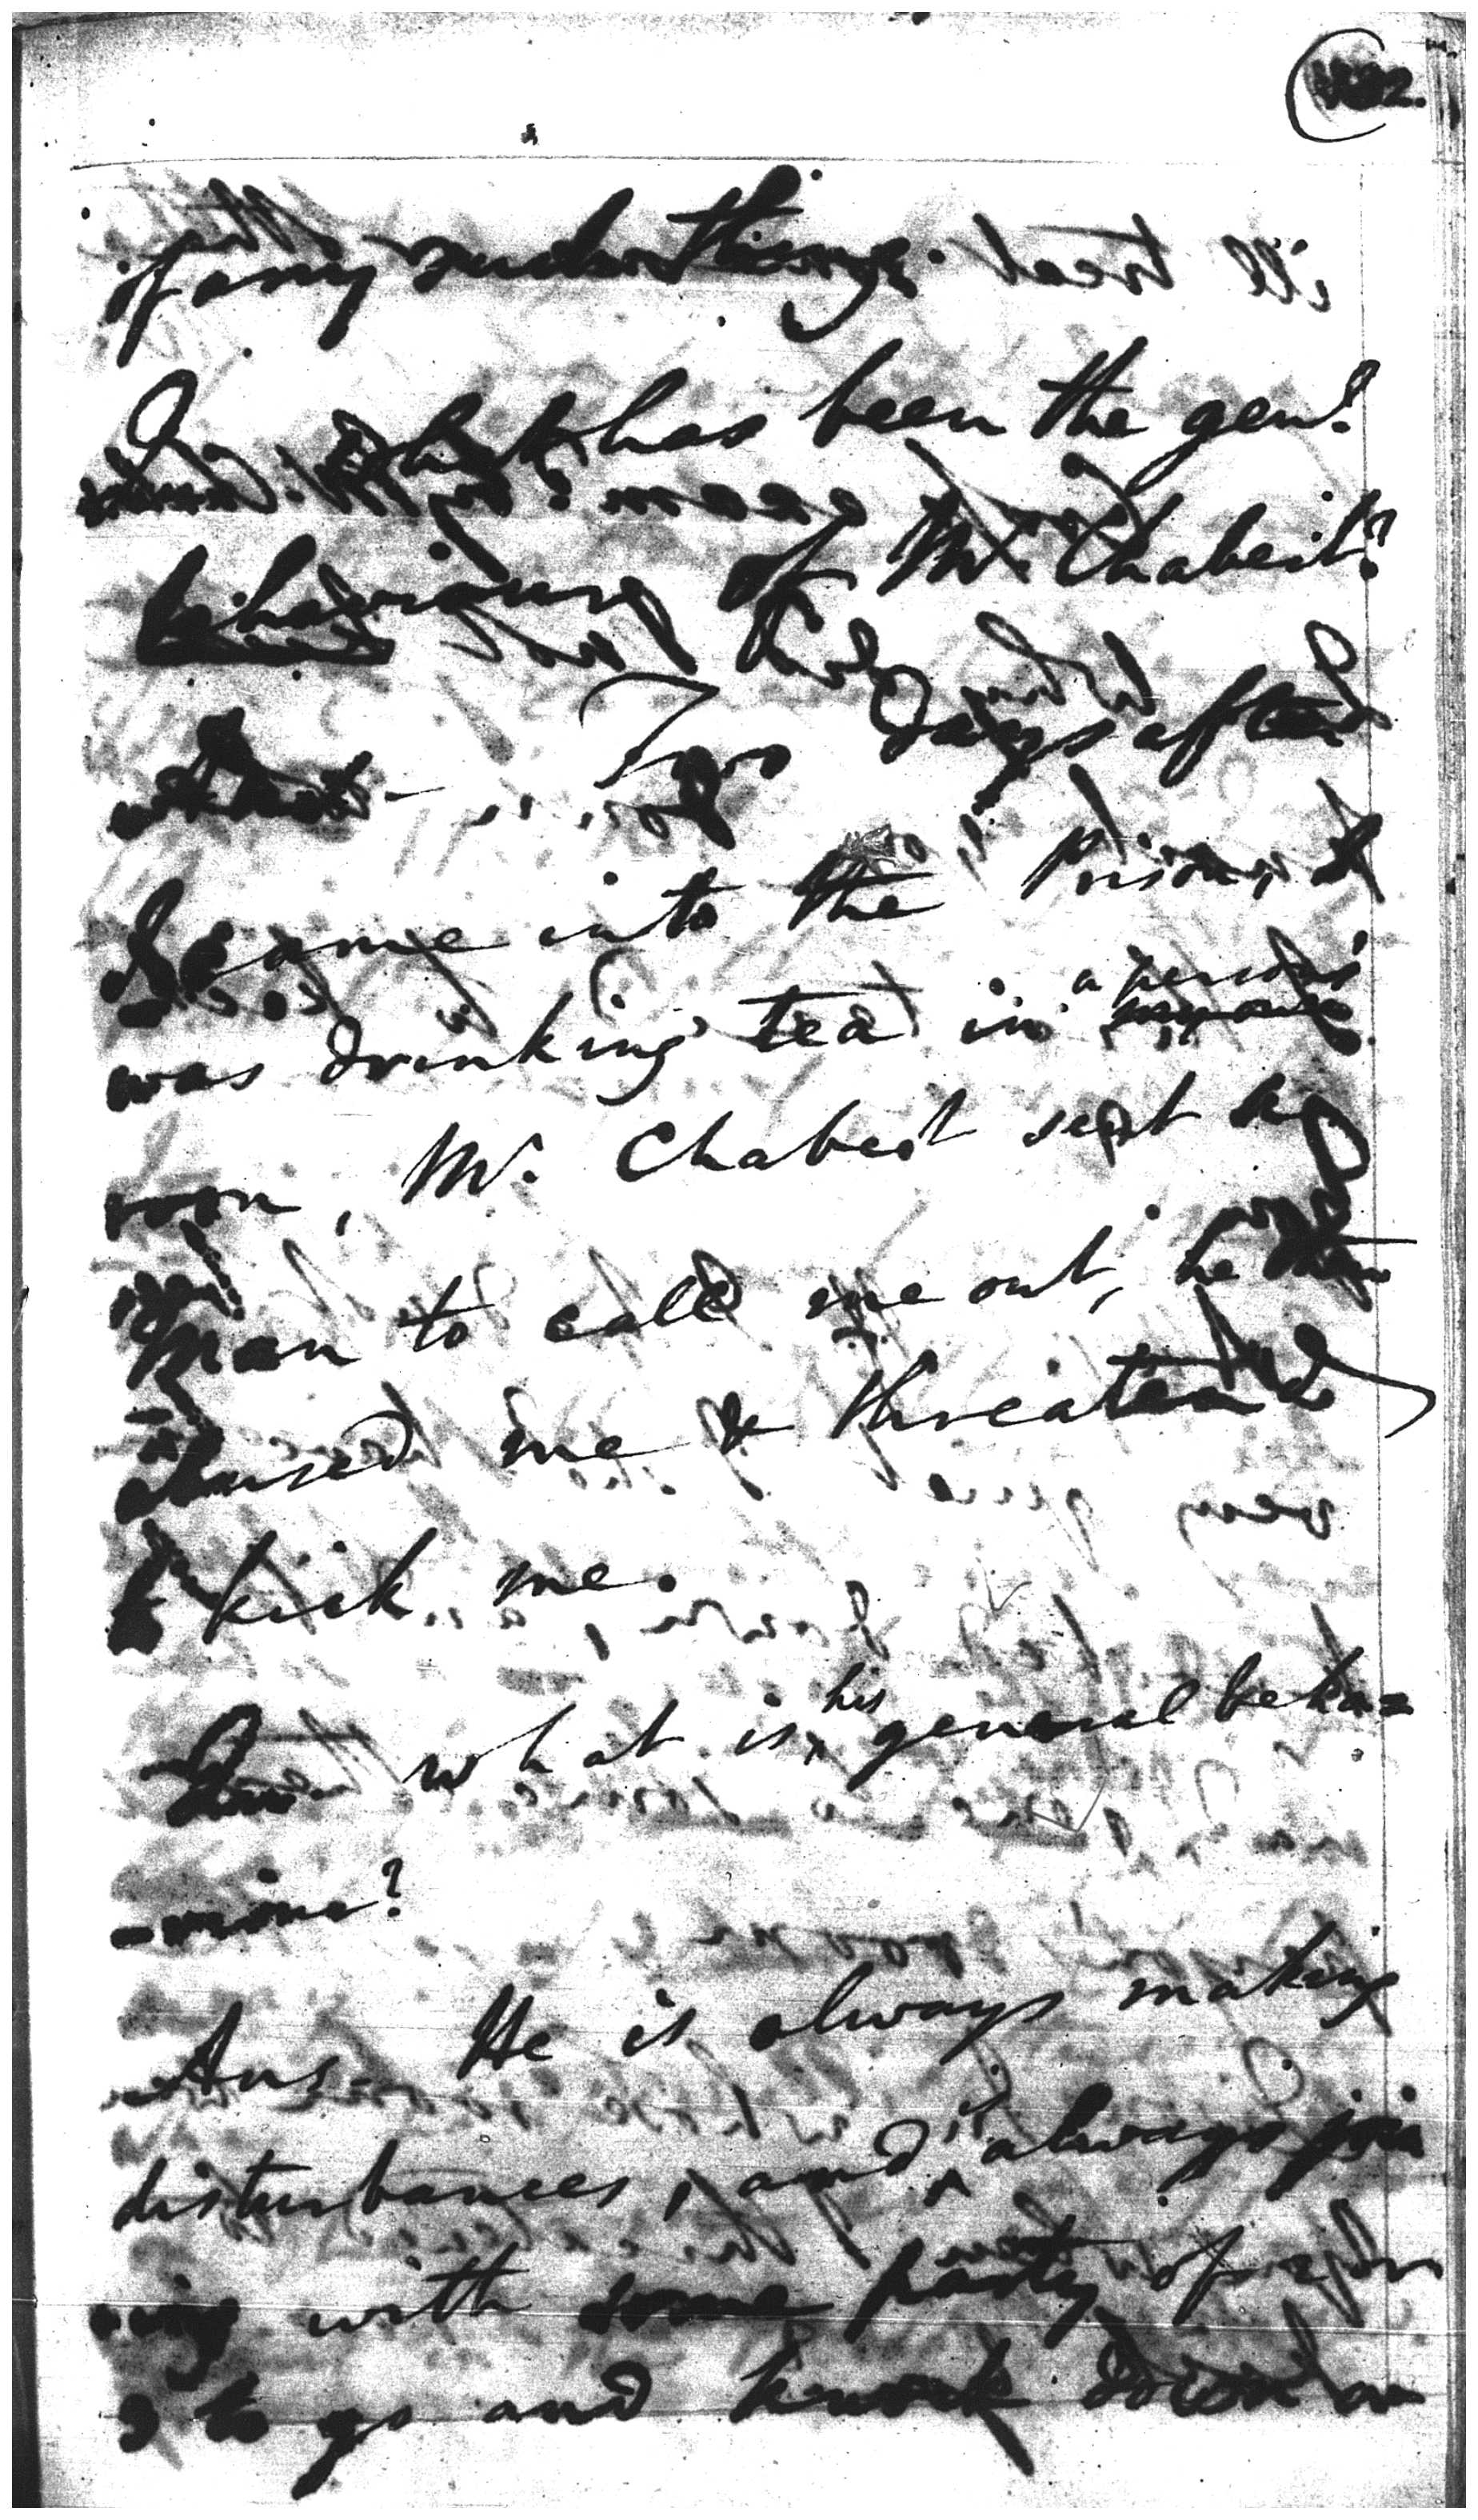 of any such thing.
Q. What has been the genl.
behaviour of Mr. Chabert?
Two days after
I came into the Prison, I
was drinking tea in a person's
room, Mr. Chabert sent a
man to call me out, he then
abused me & threatened
to kick me.
Q. What is his general beha=
-viour?
Ans - He is always making
disturbances, and is always join
-ing with some party of
to go and knock down